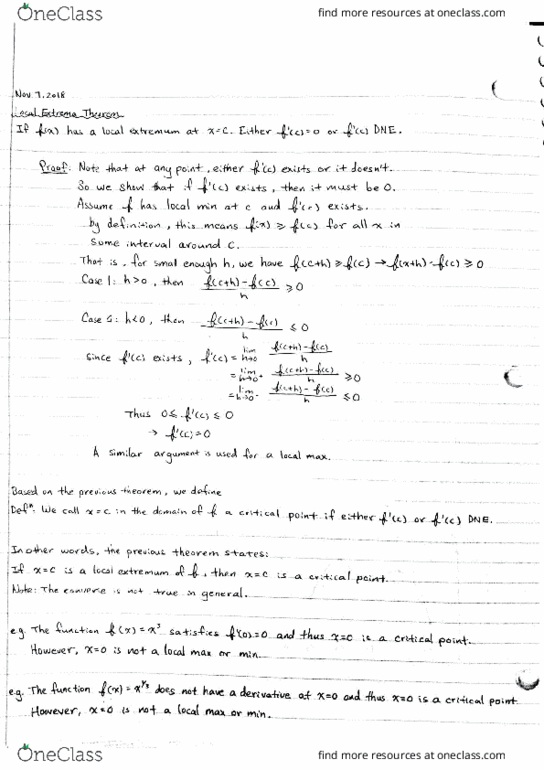 OneClass
find more resources at oneclass.com
Nov 7, 2018
Local Extrema Theorem
If f(x) has a local extremum at x=c. Either f'(c)=0 or f'(c) DNE.
Proof: Note that at any point, either f'(c) exists or it doesn't.
So we show that if f'(c) exists, then it must be 0.
Assume f has local min at c and f'(c) exists.
by definition, this means f(x) ≥ f(c) for all x in
some interval around c.
That is, for small enough h, we have f(c+h) ≥ f(c) → f(x+h) - f(c) ≥ 0
Case 1: h>0, then (f(c+h) - f(c))/h ≥ 0
Case 2: h<0, then (f(c+h) - f(c))/h ≤ 0
Since f'(c) exists, f'(c) = lim h→0 (f(c+h) - f(c))/h
= lim h→0⁺ (f(c+h) - f(c))/h ≥ 0
= lim h→0⁻ (f(c+h) - f(c))/h ≤ 0
Thus 0 ≤ f'(c) ≤ 0
→ f'(c) = 0
A similar argument is used for a local max.
Based on the previous theorem, we define
Defⁿ: We call x=c in the domain of f a critical point if either f'(c) or f'(c) DNE.
In other words, the previous theorem states:
If x=c is a local extremum of f, then x=c is a critical point.
Note: The converse is not true in general.
eg. The function f(x) = x³ satisfies f'(0)=0 and thus x=c is a critical point.
However, x=0 is not a local max or min.
eg. The function f(x) = x^(1/3) does not have a derivative at x=0 and thus x=0 is a critical point.
However, x=0 is not a local max or min.
OneClass
find more resources at oneclass.com